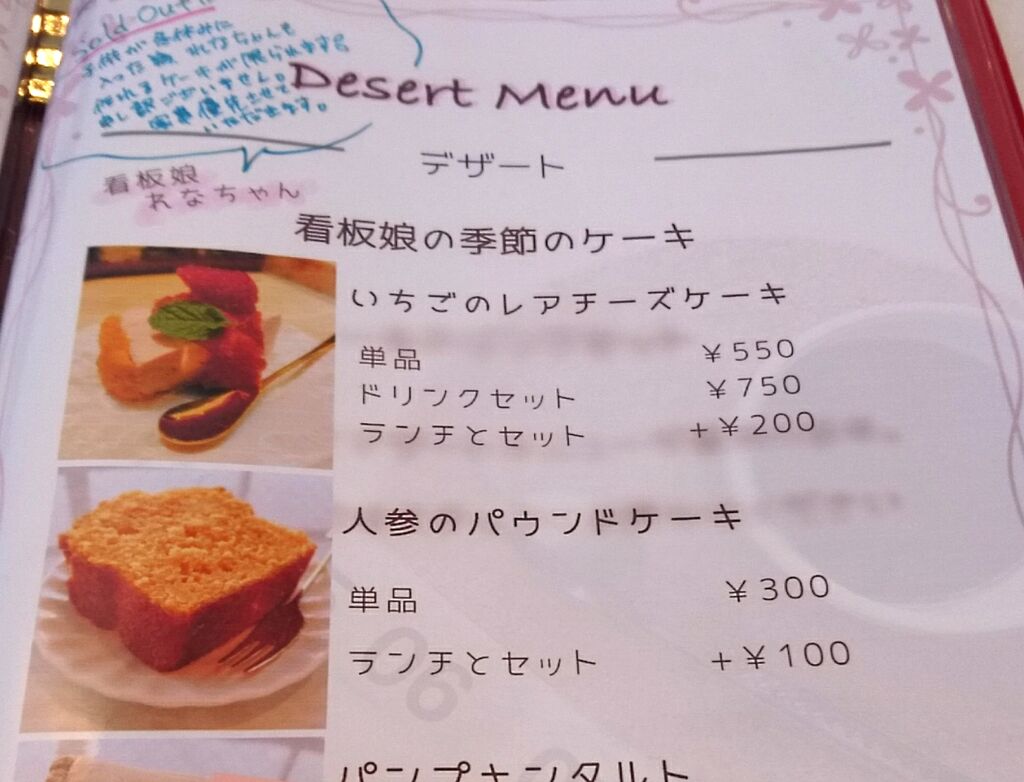 Sold Out!!
子供が夏休みに
入った為 れなちゃんも
作れるケーキが限られます
申し訳ございません。
家事優先させて
いただきます。
Desert Menu
デザート
看板娘
れなちゃん
看板娘の季節のケーキ
いちごのレアチーズケーキ
単品 ¥550
ドリンクセット ¥750
ランチとセット +¥200
人参のパウンドケーキ
単品 ¥300
ランチとセット +¥100
パンプキンタルト